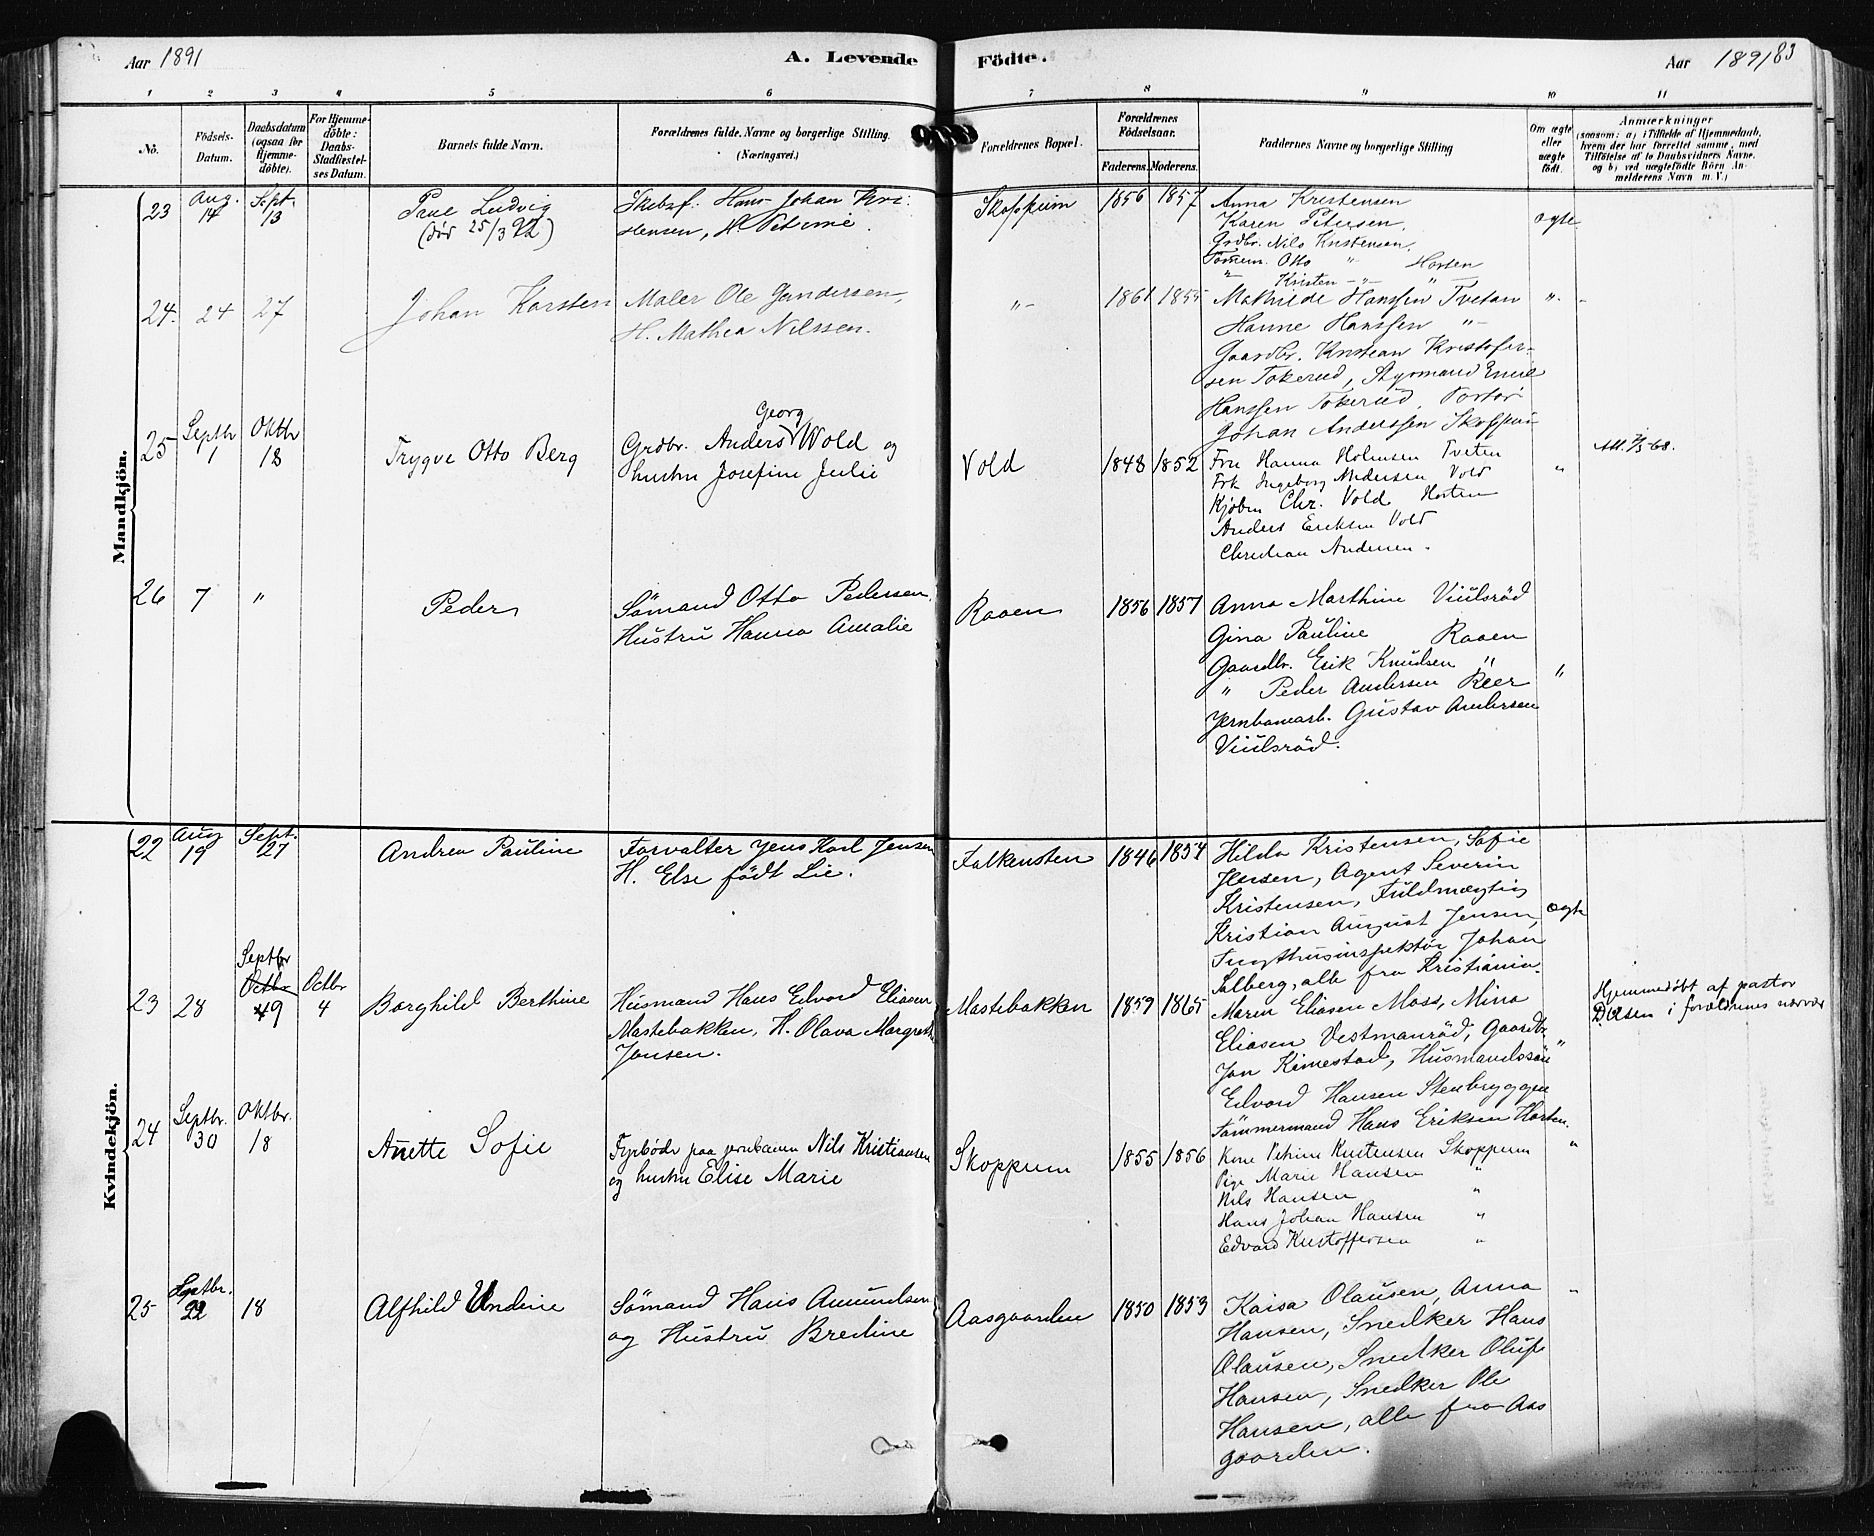 Aar 1891
A. Levende
Födte.
Aar 1891 83
1 2 3 4 5 6 7 8 9 10 11
No.
Födsels-
Datum.
Daabsdatum
(ogsaa för
Hjemme-
döbte).
For Hjemme-
döbte:
Daabs-
Stadfæstel-
ses Datum.
Barnets fulde Navn.
Forældrenes fulde. Navne og borgerlige Stilling.
(Næringsvei.)
Forældrenes Bopæl.
Forældrenes
Födselsaar.
Faderens. Moderens.
Faddernes Navne og borgerlige Stilling
Om ægte
eller
uægte
födt.
Anmærkninger
(saasom: a) i Tilfælde af Hjemmedaab,
hvem der har forrettet samme, med
Tilföielse af to Daabsvidners Navne.
og b) ved uægtefödte Börn An-
melderens Navn m. V.)
Mandkjön.
23 Aug. 14 Sept. 13
Paul Ludvig
(död 25/3 92)
Skibsf. Hans Johan Kri-
stensen, H. Petrine.
Skoppum
1856 1857
Anna Kristensen
Karen Petersen,
Grdbr. Nils Kristensen,
Tömem. Otto " Horten
" Kristen -"- "
ægte
24. 24 27
Johan Karsten
Maler Ole Gundersen,
H. Mathea Nilssen.
-"-
1861 1855
Mathilde Hanssen Tvetan
Hanne Hanssen -"-
Gaardbr. Kristian Kristofer-
sen Tokerud, Styrmand Emil
Hanssen Tokerud,
Johan Anderssen
"
25 Septbr 1 Oktbr 18
Trygve Otto Berg
Georg
Grdbr. Anders Wold og
hustru Josefine Julie
Vold
1848 1852
Fru Hanna Holmsen Tveten
Frk Ingeborg Andersen Vold
Kjöbm Chr. Vold Horten
Anders Eriksen Vold
Christian Andersen.
"
Att. 7/5-68.
26 7 "
Peder
Sömand Otto Pedersen,
Hustru Hanna Amalie
Raaen
1856 1857
Anna Marthine Viulsröd
Gina Pauline Raaen
Gaardbr. Erik Knudsen "
" Peder Andersen Reer
Jernbanearb. Gustav Andersen
Viulsröd.
"
Kvindekjön.
22 Aug 19 Sept. 27
Andrea Pauline
Forvalter Jens Karl Jensen
H. Else födt Lie.
Falkensten
1846 1854
Hilda Kristensen, Sofie
Jensen, Agent Severin
Kristensen, Fuldmægtig
Kristian August Jensen,
Tugthusinspektör Johan
Salberg, alle fra Kristiania.
ægte
23 28 Septbr Octbr 49 Octbr 4
Borghild Berthine
Husmand Hans Edvard Eliasen
Mastebakken, H. Olava Margrethe
Jensen.
Mastebakken
1859 1865
Maren Eliasen Moss, Mina
Eliasen Vestmanröd, Gaardbr.
Jan Kimestad, Husmandssön
Edvard Hansen Stenbryggen
Tömmermand Hans Eriksen Horten.
"
Hjemmedöbt af pastor
D. Olsen i forældrenes nærvær
24 Septbr. 30 Oktbr. 18
Anette Sofie
Fyrböder paa jernbanen Nils Kristiansen
og hustru Elise Marie
Skoppum
1855 1856
Kone Petrine Kristensen Skoppum
Pige Marie Hansen "
Nils Hansen "
Hans Johan Hansen "
Edvard Kristoffersen "
"
25 Septbr. 22 18
Alfhild Undine
Sömand Hans Amundsen
og Hustru Bredine
Aasgaarden
1850 1853
Kaisa Olausen, Anna
Hansen, Snedker Hans
Olausen, Snedker Oluf
Hansen, Snedker Ole
Hansen, alle fra Aas
gaarden.
"